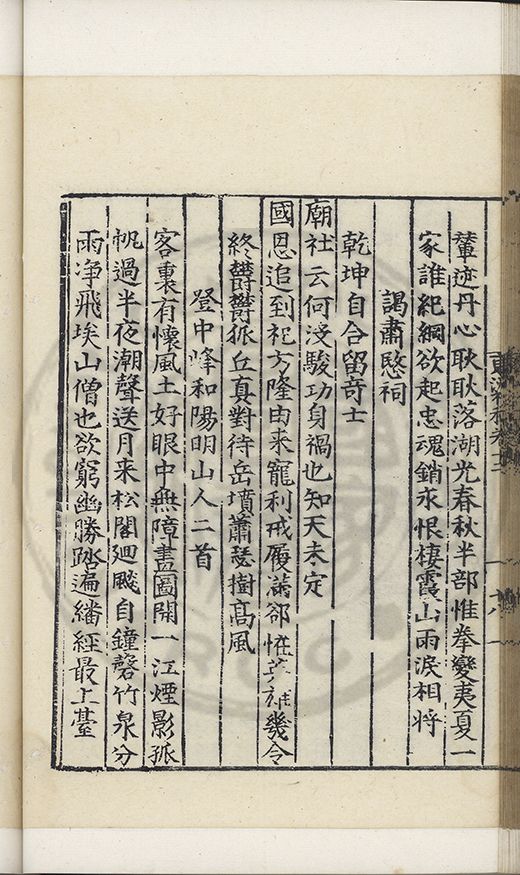 輦迹丹心耿耿落湖光春秋半部惟拳變夷夏一
家誰紀綱欲起忠魂銷永恨棲霞山雨淚相將
謁肅愍祠
乾坤自合留奇士
廟社云何沒駿功身禍也知天未定
國恩追到祀方隆由来寵利戒履滿卻恠英雄幾令
終欝欝孤丘真對待岳墳蕭瑟樹髙風
登中峰和陽明山人二首
客裏有懷風土好眼中無障畫圖開一江煙影孤
帆過半夜潮聲送月来松閣廻颷自鐘磬竹泉分
雨净飛埃山僧也欲窮幽勝踏遍繙經最上臺